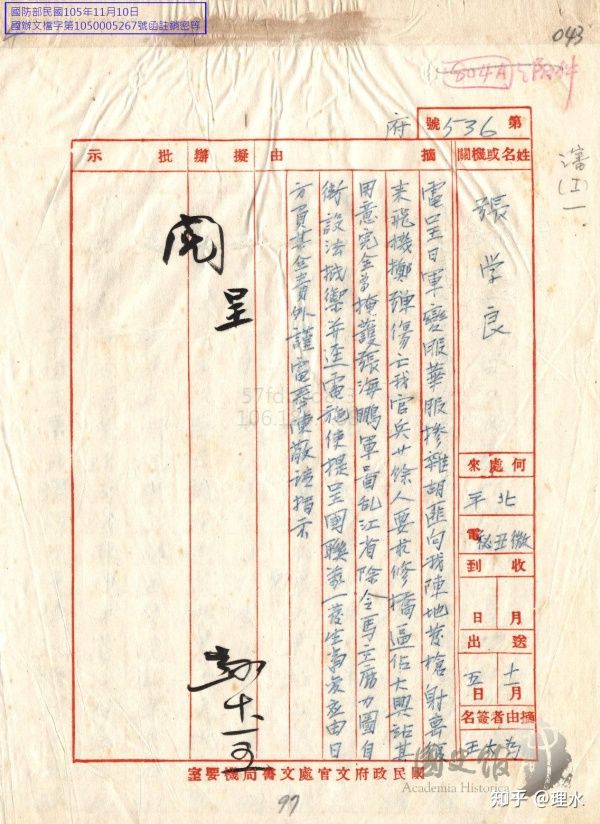 國防部民國105年11月10日
國辦文檔字第1050005267號函註銷密等
043
804A 附件
第536號
府
藩
(I)
一
姓名或機關
張学良
何處來
北平
電
微丑秘
收到
月
日
送出
十一月
五日
摘由者簽名
王大
摘由
電呈日軍變服華服摻雜胡匪向我陣地發槍射擊
来飛機擲彈傷亡我官兵廿餘人要求修橋逼佔大興站其
用意完全為掩護張海鵬軍亂江省除令馬主席力圖自
衛設法抵禦并逕電施使提呈國聯萬一發生事變應由日
方負其全責外謹電奉陳敬請指示
擬辦
批示
呈
閱
十一 五
國民政府文官處文書局機要室
97
57fd
106.1
國史館
Academia Historica
知乎 @理水